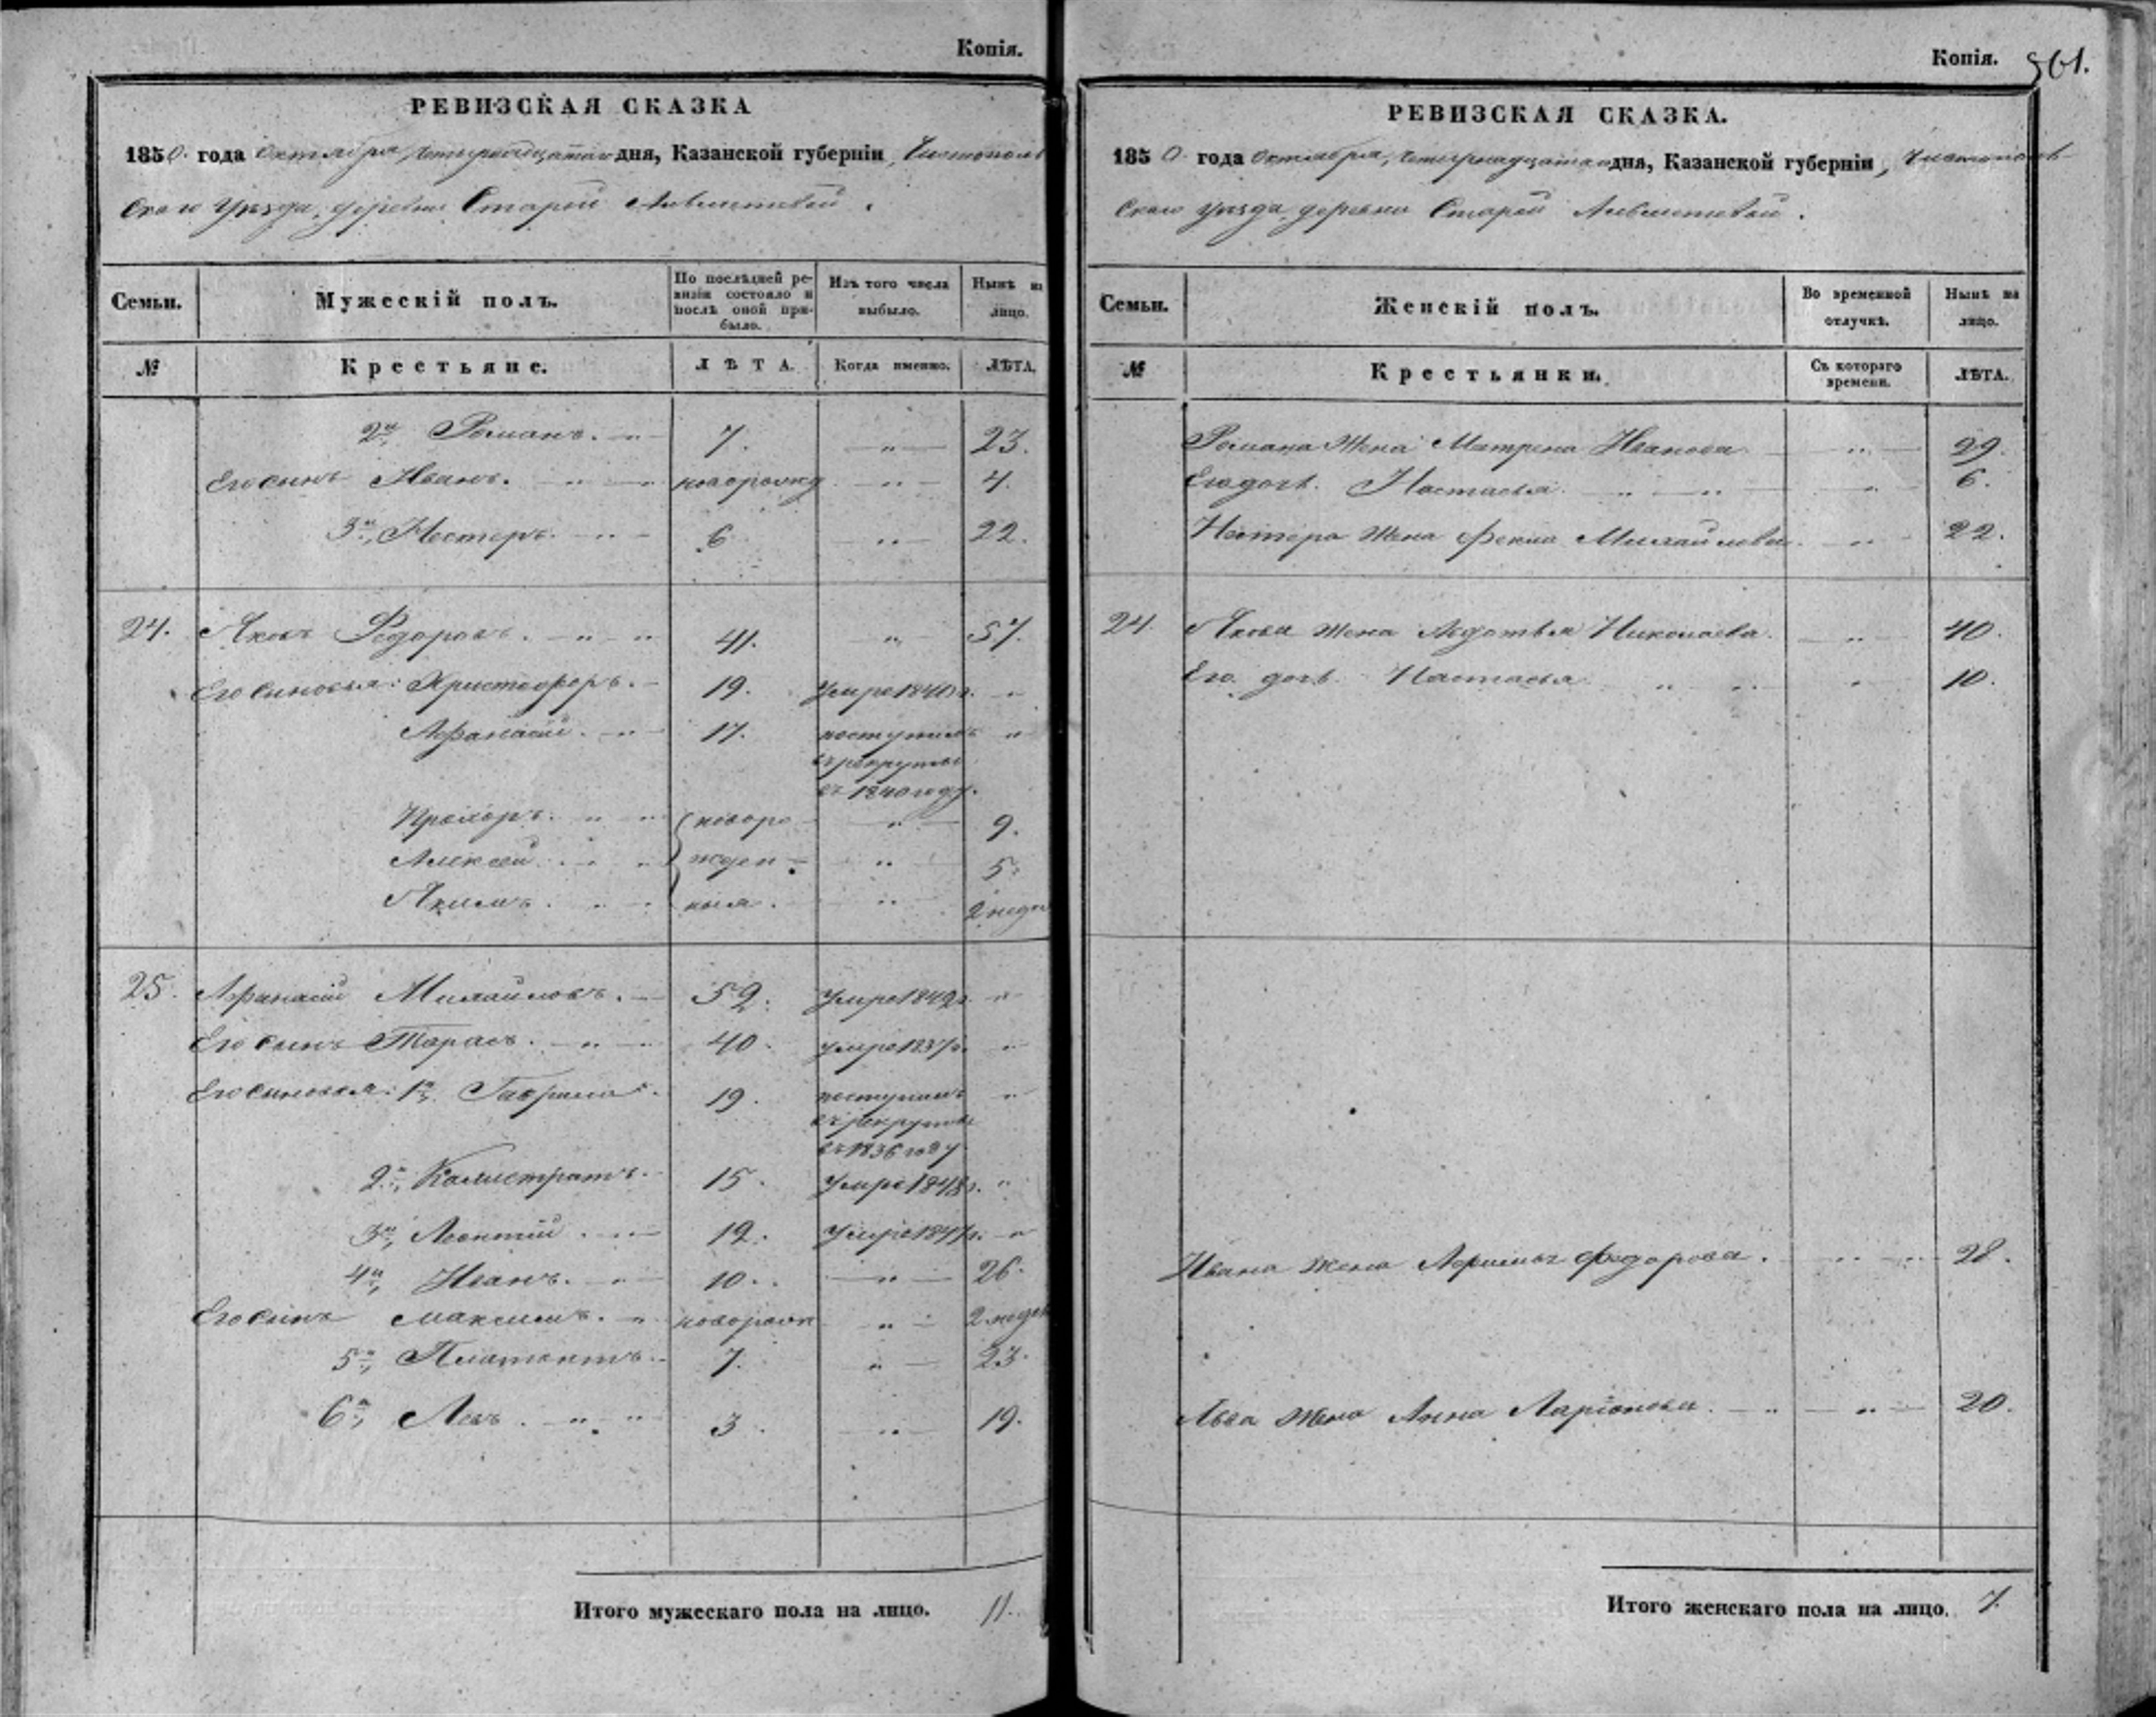 Копія.
РЕВИЗСКАЯ СКАЗКА
1850. года Октября, четырнадцатаго дня, Казанской губерніи, Чистополь
скаго Уѣзда, деревни Старой
Семьи.
Мужескій полъ.
По послѣдней ре-
визіи состояло и
послѣ оной при-
было.
Изъ того числа
выбыло.
Нынѣ на
лицо.
№
Крестьяне.
ЛѢТА.
Когда именно.
ЛѢТА.
2й, Романъ. 7. " 23.
Его сынъ Иванъ. новорожд " 4.
3й, Нестеръ. 6 " 22.
24. Яковъ Федоровъ. 41. " 57.
Его сыновья: Христофоръ. 19. Умре 1840г. "
Афанасій. 17. поступилъ "
въ рекруты
въ 1840 году.
Прохоръ. (новоро " 9.
Алексѣй. жден " 5.
Якимъ. ныя. " 2 неде
25. Афанасій Михайловъ. 52. Умре 1849г. "
Его сынъ Тарасъ. 40. умре 1837г. "
Его сыновья: 1й, Гаврила. 19. поступилъ "
въ рекруты
въ 1836 году
2й, Калистратъ. 15. Умре 1848г. "
3й, Леонтій. 12. Умре 1847г. "
4й, Иванъ. 10. " 26.
Его сынъ Максимъ. новорожд " 2 недел
5й, Платонъ. 7. " 23.
6й, Левъ. 3. " 19.
Итого мужескаго пола на лицо. 11.
Копія. 561.
РЕВИЗСКАЯ СКАЗКА.
1850 года Октября, четырнадцатаго дня, Казанской губерніи, Чистополь-
скаго уѣзда деревни Старой
Семьи.
Женскій полъ.
Во временной
отлучкѣ.
Нынѣ на
лицо.
№
Крестьянки.
Съ котораго
времени.
ЛѢТА.
Романа Жена Матрена Иванова " 29.
Его дочь. Настасья. " 6.
Нестера Жена Фекла Михайлова. " 22.
24. Якова жена Авдотья Николаева. " 40.
Его дочь Настасья " 10.
Ивана жена Федорова. " 28.
Льва жена Анна Ларіонова. " 20.
Итого женскаго пола на лицо. 7.